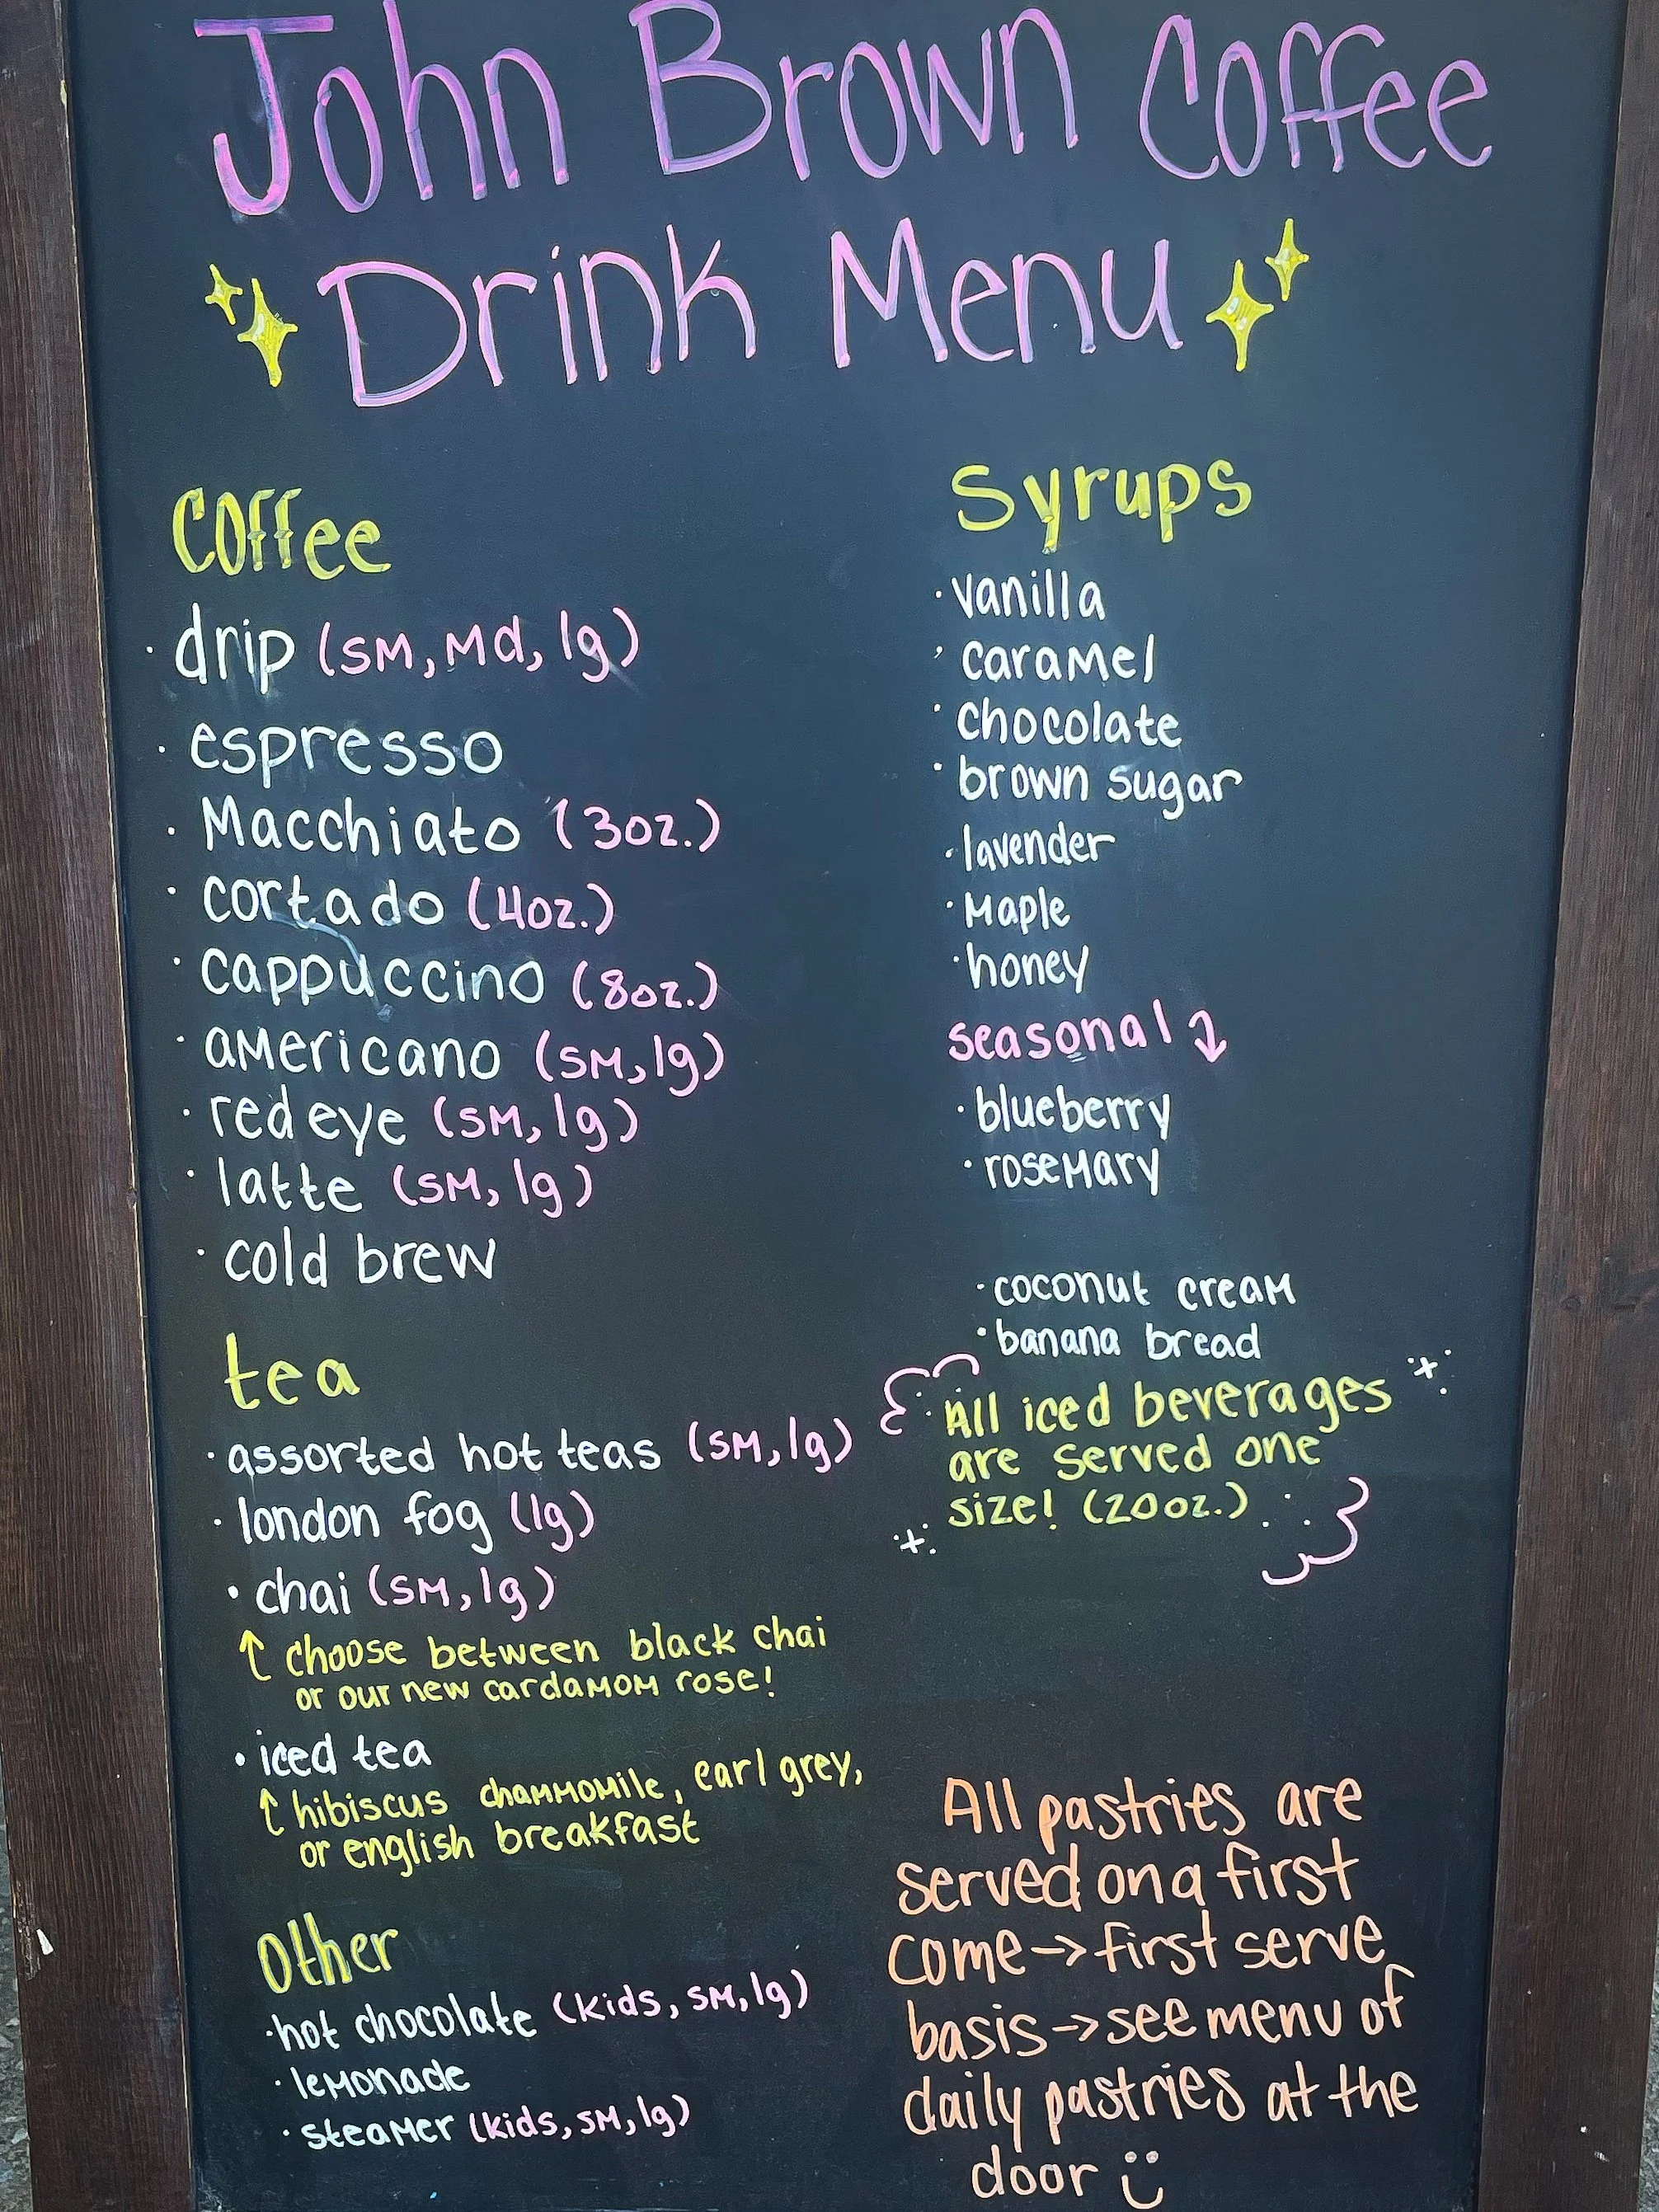 John Brown Coffee
Drink Menu
Coffee
· drip (sm, md, lg)
· espresso
· Macchiato (3oz.)
· cortado (4oz.)
· cappuccino (8oz.)
· americano (sm, lg)
· red eye (sm, lg)
· latte (sm, lg)
· cold brew
tea
· assorted hot teas (sm, lg)
· london fog (lg)
· chai (sm, lg)
↑ choose between black chai
or our new cardamom rose!
· iced tea
↑ hibiscus chammomile, earl grey,
or english breakfast
Other
· hot chocolate (kids, sm, lg)
· lemonade
· steamer (kids, sm, lg)
Syrups
· vanilla
· caramel
· chocolate
· brown sugar
· lavender
· maple
· honey
seasonal ↓
· blueberry
· rosemary
· coconut cream
· banana bread
All iced beverages
are served one
size! (20oz.)
All pastries are
served on a first
come → first serve
basis → see menu of
daily pastries at the
door :)